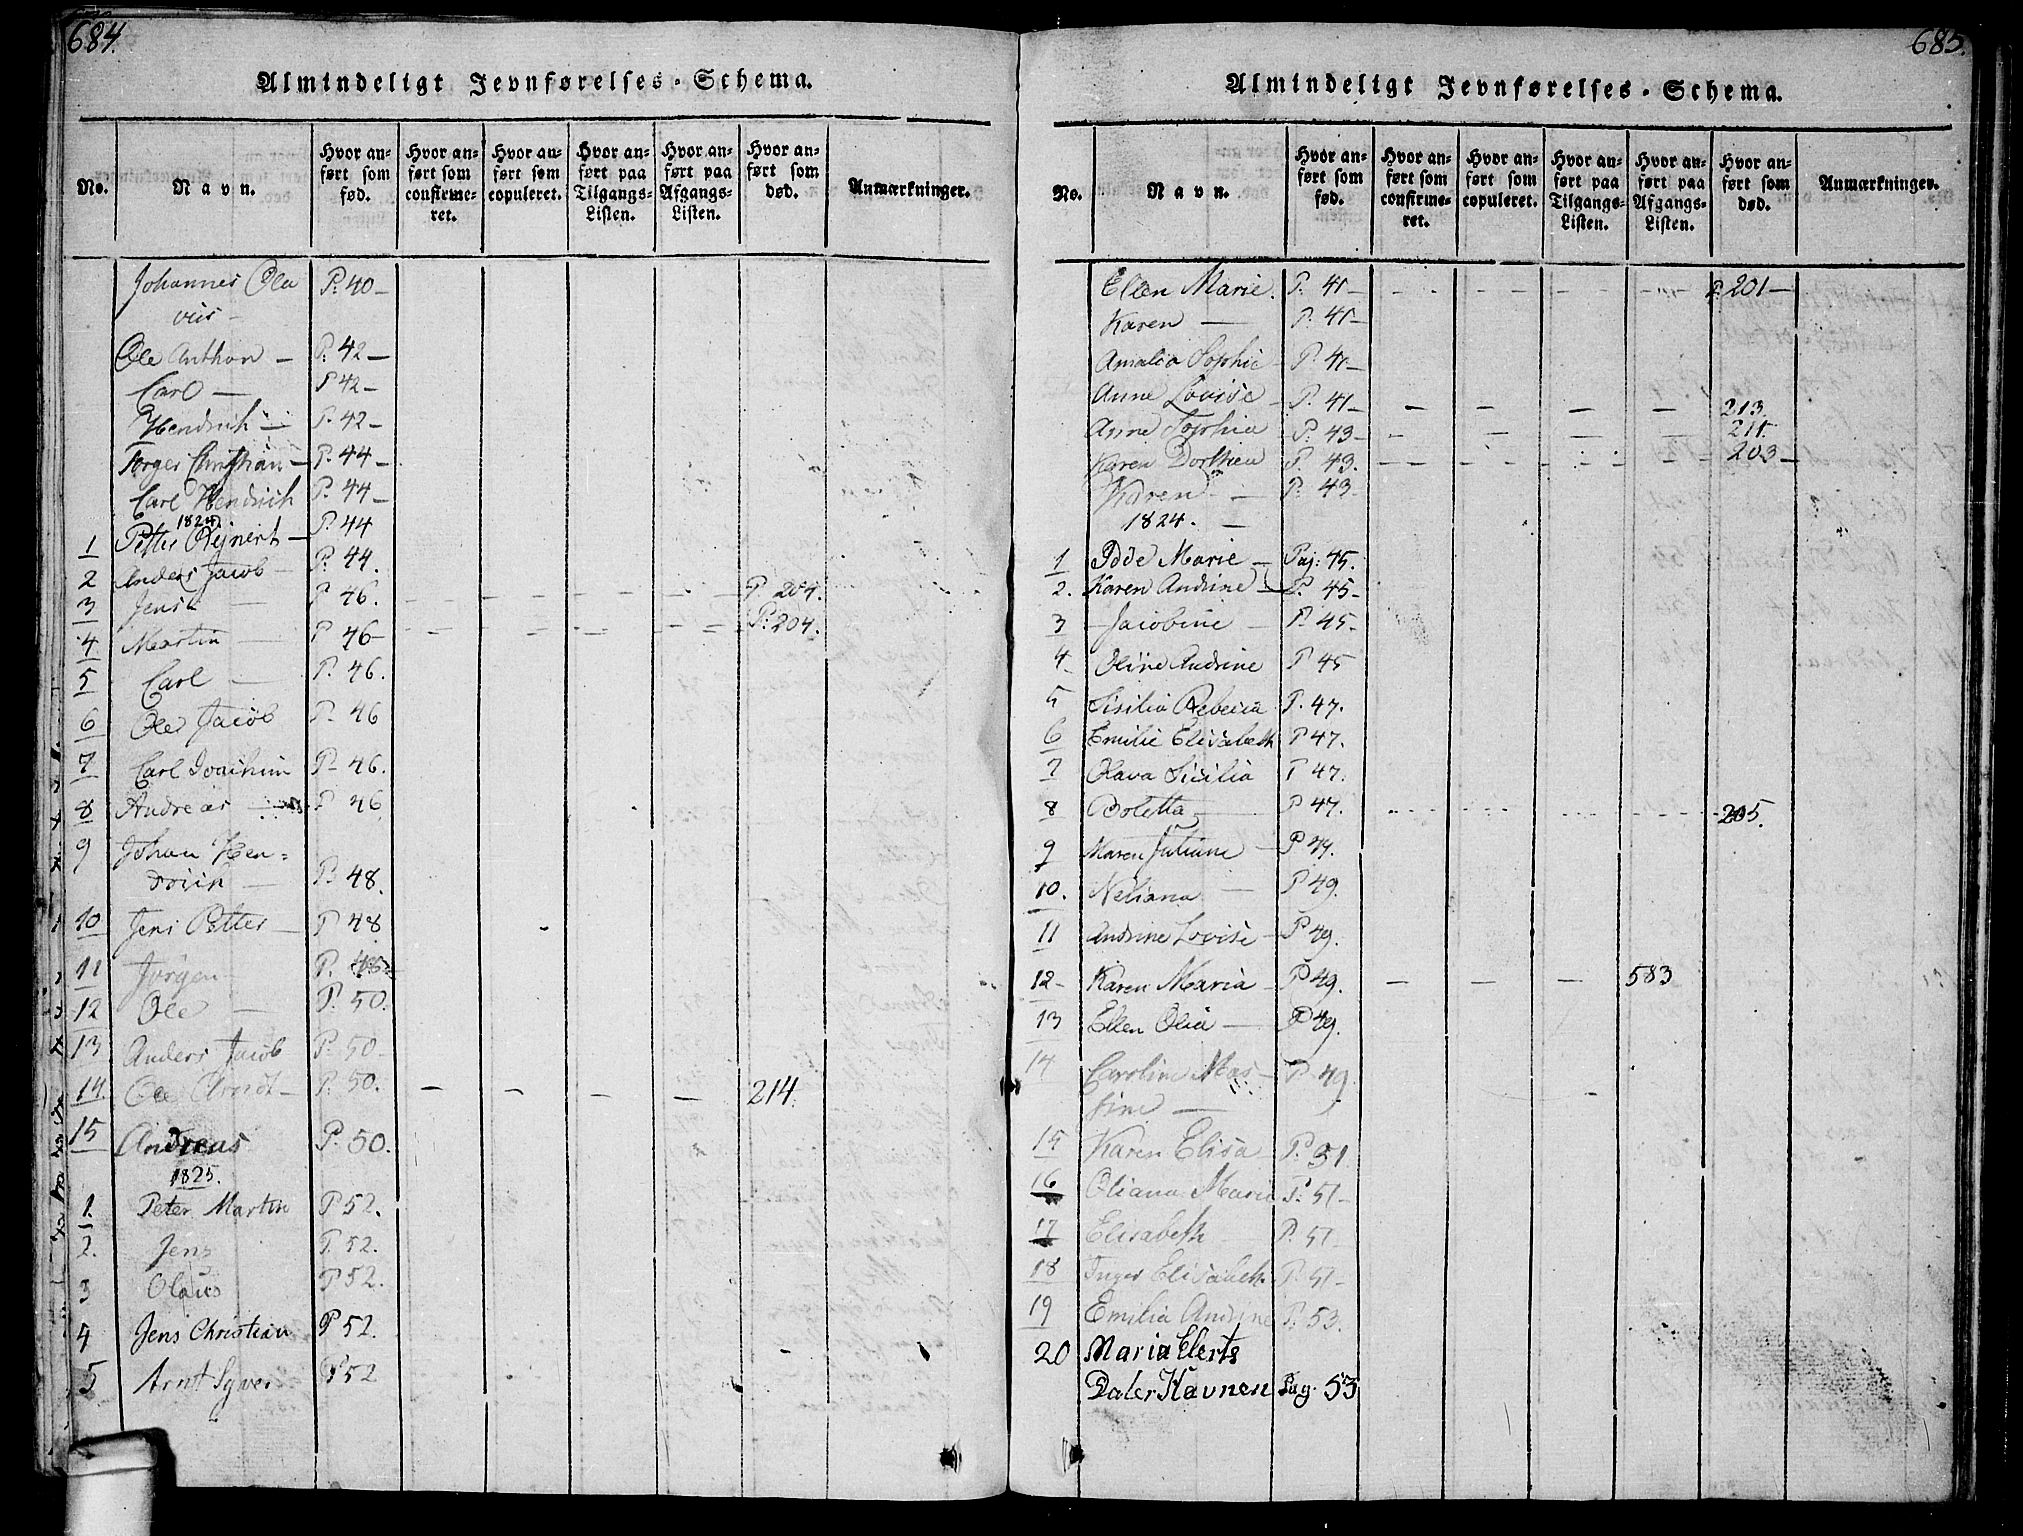 684.
Almindeligt Jevnførelses-Schema.
No. Navn. Hvor anført som fød. Hvor anført som confirmeret. Hvor anført som copuleret. Hvor anført paa Tilgangs-Listen. Hvor anført paa Afgangs-Listen. Hvor anført som død. Anmærkninger.
Johannes Ola P. 40 -
vus -
Ole Anthon - P. 42 -
Carl - P 42 -
Hendrich - P. 42 -
Torger Christian - P. 44 -
Carl Hendrich P. 44 -
1824
1 Petter Rejnert - P. 44
2 Anders Jacob - P. 44.
3 Jens - P 46. - - - - P 204.
4 Martin - P 46 - - - - - P: 204.
5 Carl - P. 46.
6 Ole Jacob P. 46
7 Carl Joachim P. 46.
8 Andreas - P 46
9 Johan Hen=
drich - P. 48.
10 Jens Petter - P 48
11 Jørgen - P. 48
12 Ole - P. 50.
13 Anders Jacob P. 50 -
14. Ole Arndt - P. 50. - - - - 214.
15 Andreas P. 50.
1825.
1. Peter Martin P 52.
2. Jens P. 52.
3 Olaus P 52.
4 Jens Christian P 52.
5 Arnt Syver P 52
685.
Almindeligt Jevnførelses-Schema.
No. Navn. Hvor anført som fød. Hvor anført som confirmeret. Hvor anført som copuleret. Hvor anført paa Tilgangs-Listen. Hvor anført paa Afgangs-Listen. Hvor anført som død. Anmærkninger.
Ellen Marie. P. 41 - - - - - P. 201 -
Karen - P. 41 -
Amalia Sophie P. 41 -
Anne Lovise - P. 41 - - - - - 213
Anne Sophia - P. 43 - - - - - 211.
Karen Dorthea P. 43. - - - - 203 -
Karen - P. 43 -
1824. -
1 Marie - Pag: 45.
2. Karen Andrine - P. 45 -
3 Jacobine - P. 45 -
4 - Oline Andrine P 45
5 Sisilia Rebecca P. 47.
6 Emilie Elisabeth P 47.
7 Olava Sicilia P 47.
8 Boletta - P 47. - - - - 205.
9 Maren Juliane - P 49.
10. Neliana - P 49.
11 Andrine Lovise - P 49.
12 - Karen Maria - P 49. - - - 583
13 Ellen Olia - P 49.
14 Caroline Mas - P. 49
tine -
15 Karen Elisa P. 51.
16 Oliana Marie P. 51 -
17 Elisabeth - P. 51
18 Inger Elisabeth P. 51 -
19 Emilia Andrine P. 53.
20 Maria Elerts
Daler Havnen Pag. 53